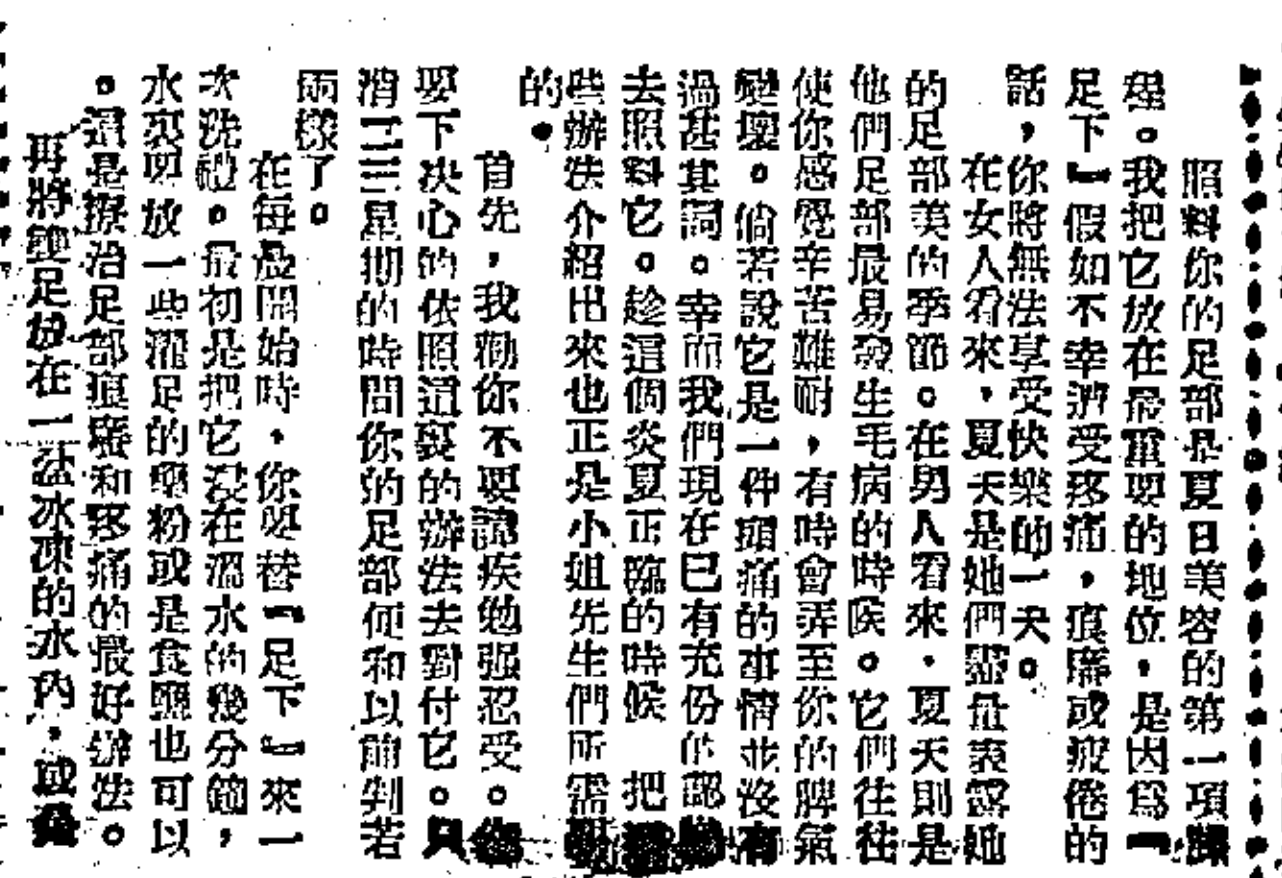 照料你的足部是夏日美容的第一項課
程。我把它放在最重要的地位,是因爲『
足下』假如不幸遭受疼痛,痕癢或疲倦的
話,你將無法享受快樂的一天。
在女人看來,夏天是她們盡量表露她
的足部美的季節。在男人看來,夏天則是
他們足部最易發生毛病的時候。它們往往
使你感覺辛苦難耐,有時會弄至你的脾氣
變壞。倘若說它是一件頭痛的事情並沒有
過甚其詞。幸而我們現在已有充份的認
去照料它。趁這個炎夏正臨的時候 把
些辦法介紹出來也正是小姐先生們所需
的。
首先,我勸你不要諱疾勉强忍受。
要下決心的依照這裏的辦法去對付它。只
消二三星期的時間你的足部便和以前判若
兩樣了。
在每晨開始時,你要替『足下』來一
次洗禮。最初是把它浸在溫水的幾分鐘,
水裏要放一些濯足的藥粉或是食鹽也可以
。這是療治足部痕癢和疼痛的最好辦法。
再將雙足放在一盆冰凍的水內,或